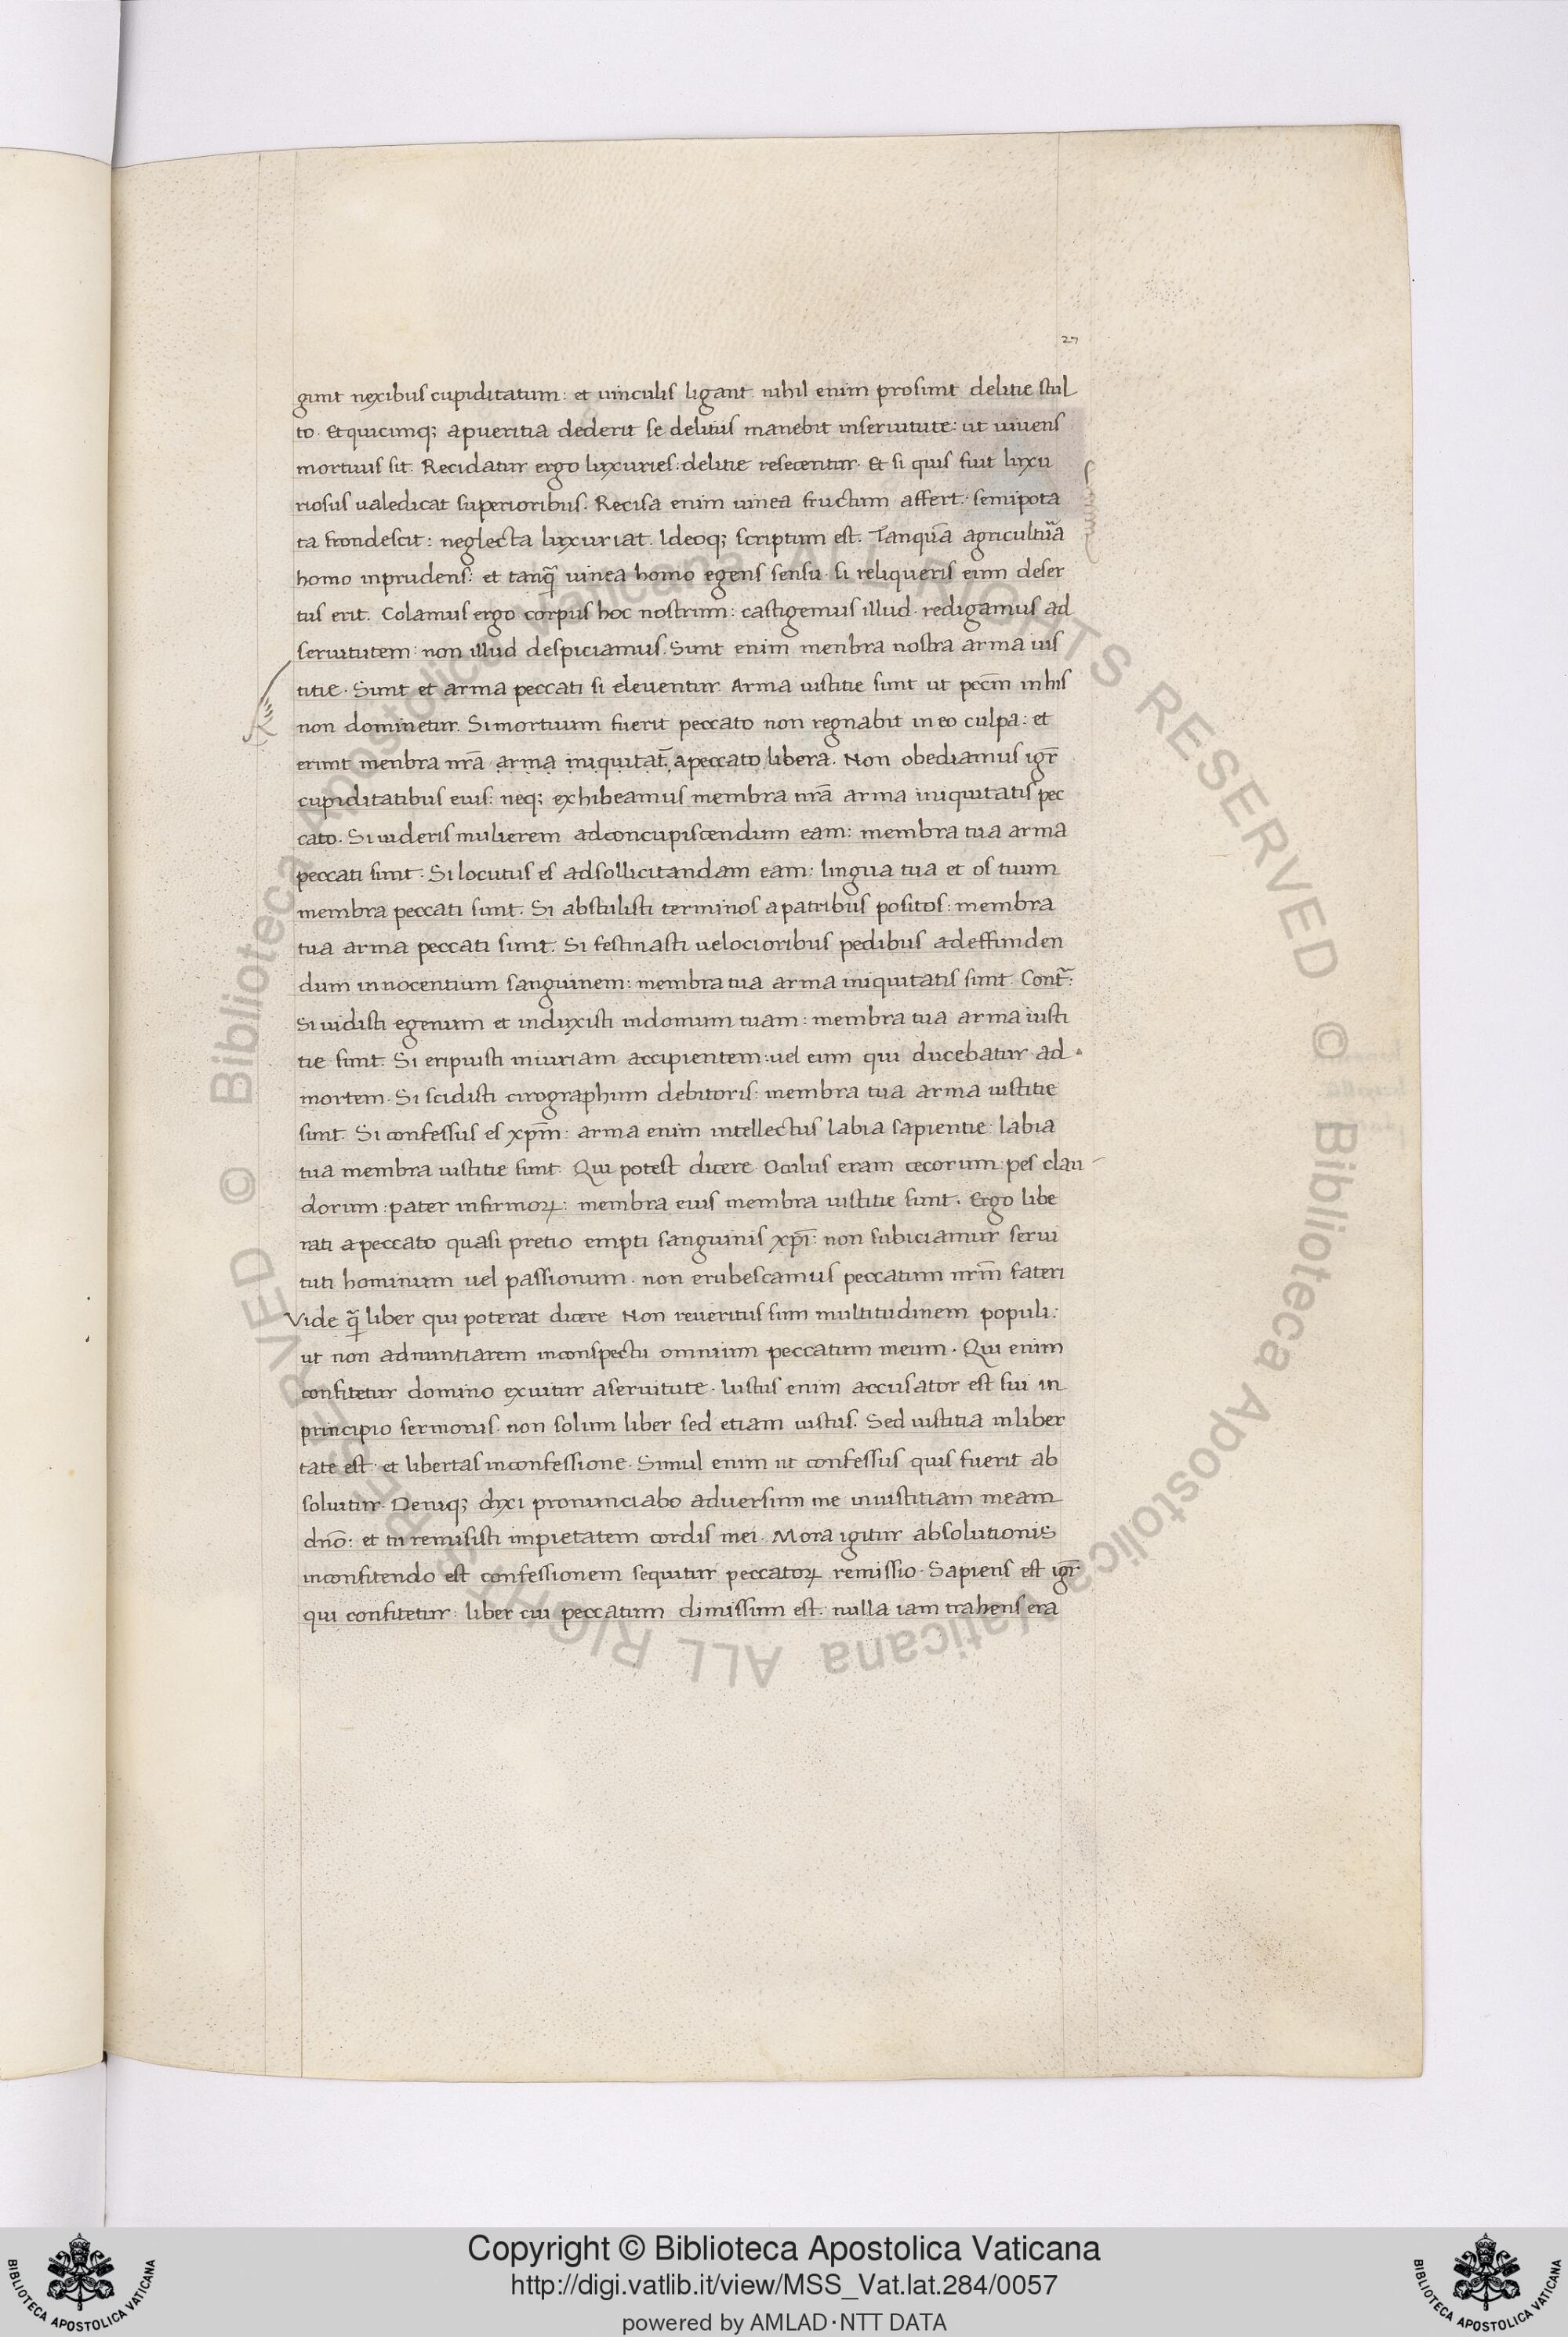 27
gunt nexibus cupiditatum: et uinculis ligant. nihil enim prosunt delitie stul
to. Et quicunq; apueritia dederit se delitiis manebit inseruitute: ut uiuens
mortuus sit. Recidatur ergo luxuries: delitie resecentur. Et si quis fuit luxu
riosus ualedicat superioribus. Recisa enim uinea fructum affert. semipota
ta frondescit: neglecta luxuriat. Ideoq; scriptum est. Tanquā agricultura
homo inprudens: et tanq̃ uinea homo egens sensu. si reliqueris eum deser
tus erit. Colamus ergo corpus hoc nostrum: castigemus illud. redigamus ad
seruitutem: non illud despiciamus. Sunt enim menbra nostra arma ius
titie. Sunt et arma peccati si eleuentur. Arma iustitie sunt ut pccm̄ inhis
non dominetur. Si mortuum fuerit peccato non regnabit in eo culpa: et
erunt menbra nrā arma iniquitat̄. apeccato libera. Non obediamus igr̄
cupiditatibus eius: neq; exhibeamus membra nrā arma iniquitatis pec
cato. Si uideris mulierem adconcupiscendum eam: membra tua arma
peccati sunt. Si locutus es adsollicitandam eam: lingua tua et os tuum
membra peccati sunt. Si abstulisti terminos apatribus positos: membra
tua arma peccati sunt. Si festinasti uelocioribus pedibus adeffunden
dum innocentium sanguinem: membra tua arma iniquitatis sunt. Cont̃:
Si uidisti egenum et induxisti indomum tuam: membra tua arma iusti
tie sunt. Si eripuisti iniuriam accipientem: uel eum qui ducebatur ad
mortem. Si scidisti cirographum debitoris: membra tua arma iustitie
sunt. Si confessus es xpm̄: arma enim intellectus labia sapientie: labia
tua membra iustitie sunt. Qui potest dicere. Oculus eram cecorum: pes clau
dorum: pater infirmoꝝ: membra eius membra iustitie sunt. Ergo libe
rati apeccato quasi pretio empti sanguinis xpī: non subiciamur serui
tuti hominum uel passionum. non erubescamus peccatum nrm̄ fateri
Vide q̃ liber qui poterat dicere Non reueritus sum multitudinem populi:
ut non adnuntiarem inconspectu omnium peccatum meum. Qui enim
confitetur domino exuitur aseruitute. Iustus enim accusator est sui in
principio sermonis. non solum liber sed etiam iustus. Sed iustitia inliber
tate est. et libertas inconfessione. Simul enim ut confessus quis fuerit ab
soluitur. Deniq; dixi pronunciabo aduersum me iniustitiam meam
dnō: et tu remisisti impietatem cordis mei. Mora igitur absolutionis
inconfitendo est confessionem sequitur peccatoꝝ remissio. Sapiens est igr̄
qui confitetur: liber cui peccatum dimissum est. nulla iam trahens era
© Biblioteca Apostolica Vaticana ALL RIGHTS RESERVED © Biblioteca Apostolica Vaticana ALL RIGHTS RESERVED
Copyright © Biblioteca Apostolica Vaticana
http://digi.vatlib.it/view/MSS_Vat.lat.284/0057
powered by AMLAD·NTT DATA
BIBLIOTECA APOSTOLICA VATICANA
BIBLIOTECA APOSTOLICA VATICANA